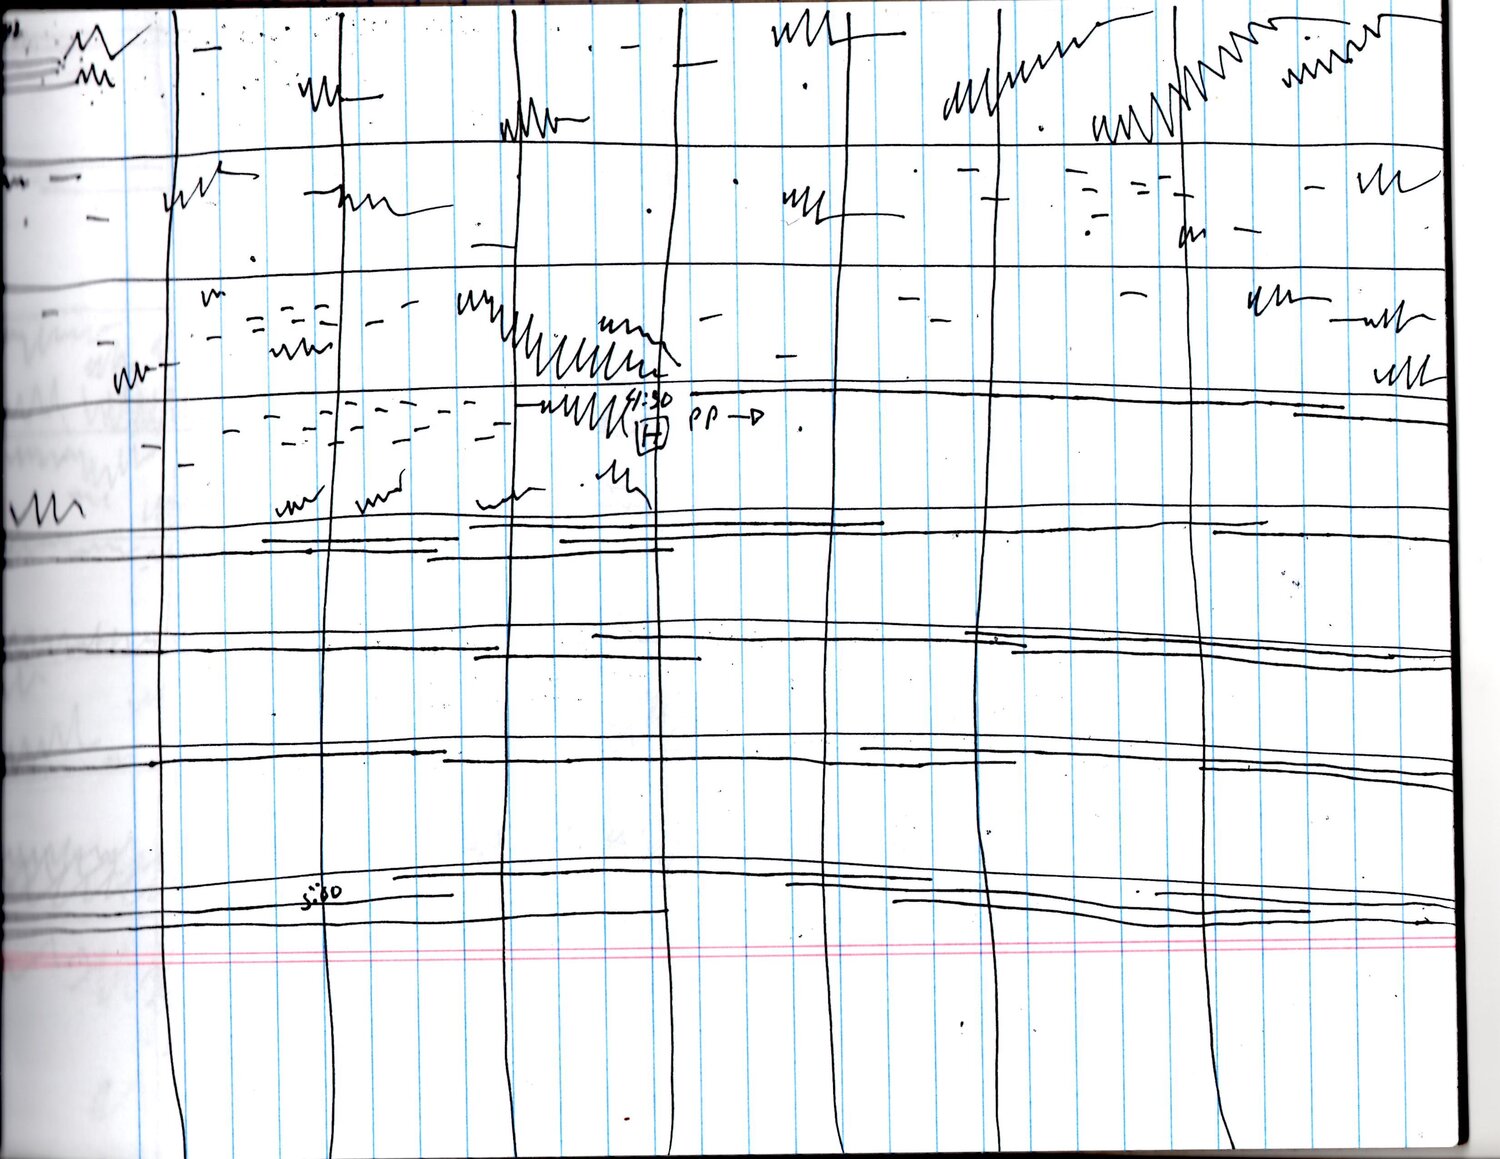 4:30
H PP →
5:00